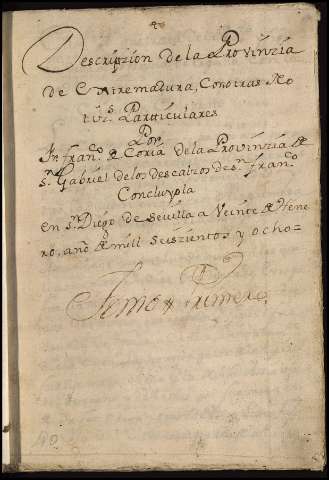 Descripzion de la Provinzia
de Extremadura, Con otras No
tizs. Particulares
Por
Fr franco. de Coria de la Provinzia de
Sn. Gabriel de los descalzos de Sn. franco.
Concluyola
en Sn. Diego de Sevilla a Veinte de Hene
ro, año de mill Seiszientos y ocho-
Tomo Primero